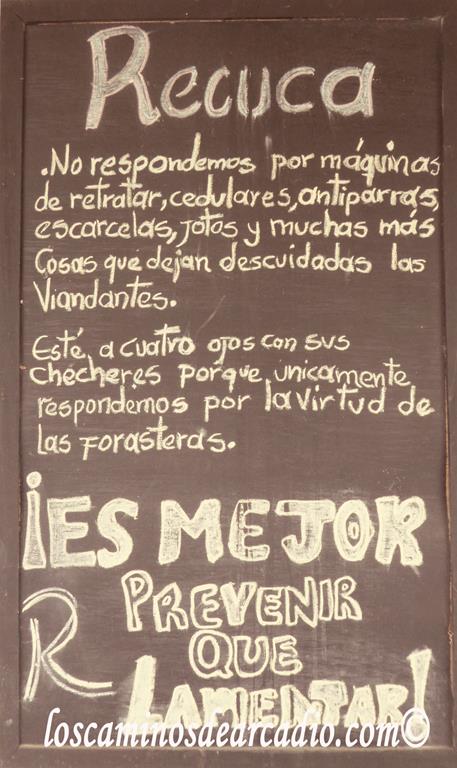 Recuca
.No respondemos por máquinas
de retratar, cedulares, antiparras,
escarcelas, jotos y muchas más
Cosas que dejan descuidadas las
Viandantes.
Esté, a cuatro ojos con sus
chécheres porque, únicamente,
respondemos por la virtud de
las forasteras.
¡ES MEJOR
PREVENIR
QUE
LAMENTAR!
R
loscaminosdearcadio.com©